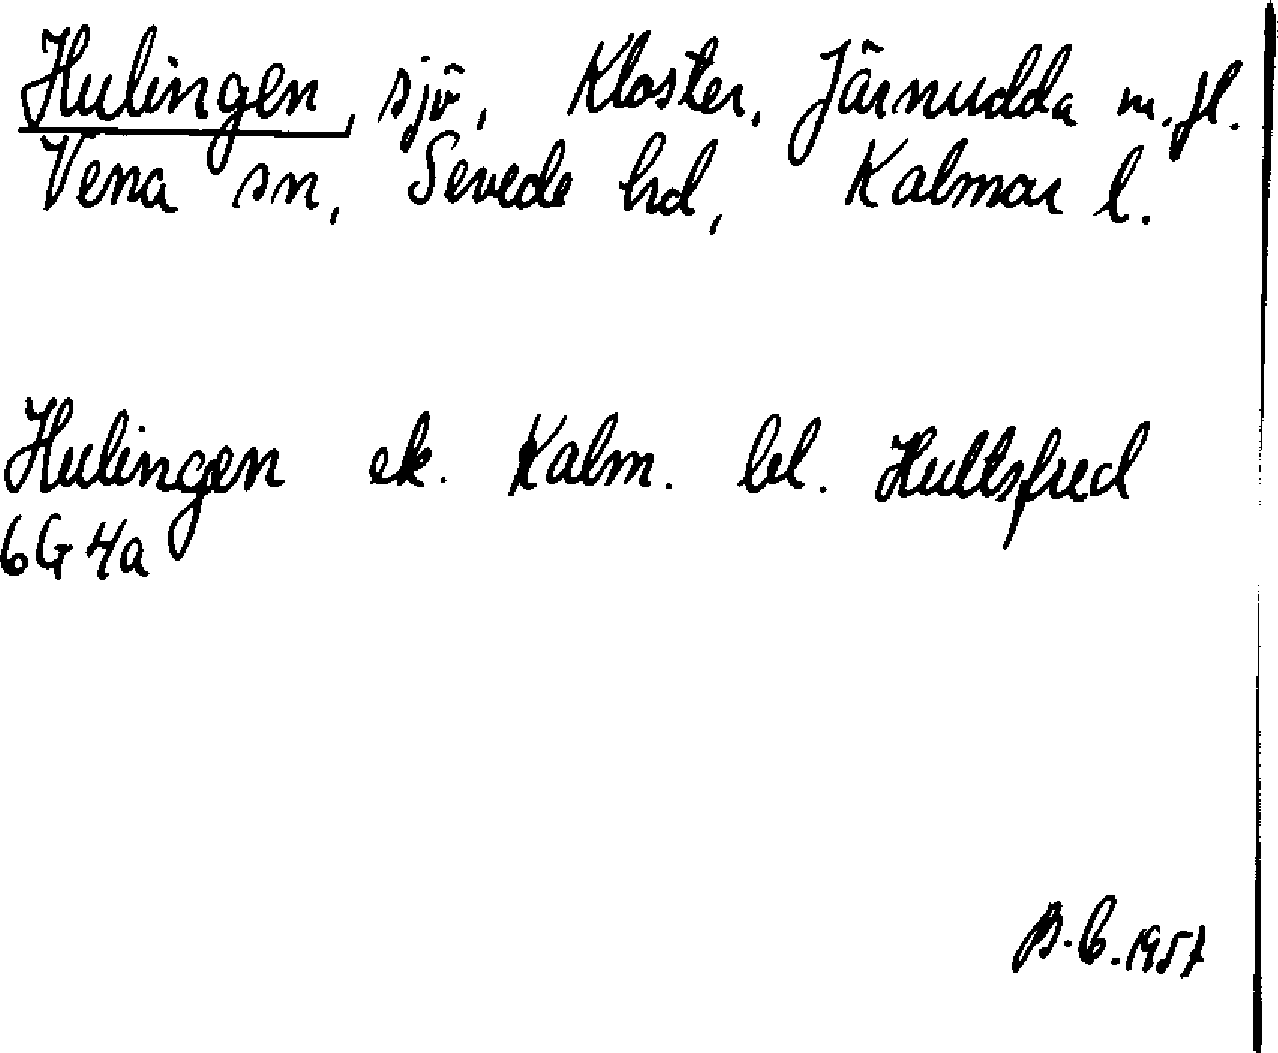 Hulingen, sjö, Kloster, Järnudda m.fl.
Vena sn, Sevede hd, Kalmar l.
Hulingen ek. Kalm. bl. Hultsfred
6G 4a
B.b. 1957